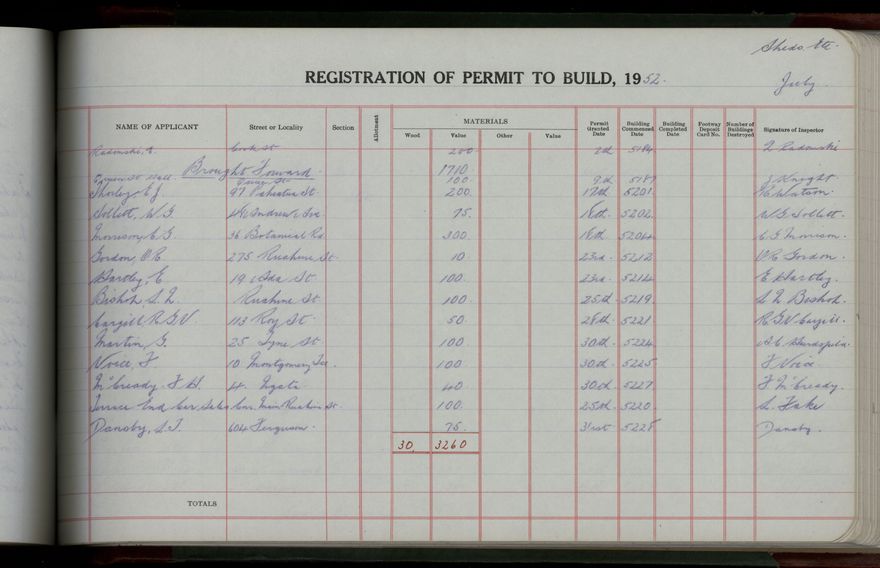 Sheds Etc.
REGISTRATION OF PERMIT TO BUILD, 1952.
July
NAME OF APPLICANT Street or Locality Section Allotment MATERIALS Permit Granted Date Building Commenced Date Building Completed Date Footway Deposit Card No. Number of Buildings Destroyed Signature of Inspector
Wood Value Other Value
Radomski, E. Cook St 200 2nd 5184 Radomski
Brought Forward 1710
Hall 100 9th 5187 Knight
E.J. 97 St. 200. 17th 5201 Watson
Sollitt, W.G. 48 Andrew Ave 75. 18th. 5202. W.G. Sollitt.
Morrison, C.G. 36 Botanical Rd 300. 18th. 5204 C.G. Morrison.
Gordon, O.R. 275 Ruahine St. 10 23rd. 5212 O.R. Gordon.
Hartley, E 19 Ada St. 100. 23rd. 5214 E Hartley.
Bishop, S.L. Ruahine St 100 25th. 5219 S L Bishop.
Cargill R.G.V 113 Roy St. 50. 28th. 5221. R.G.V Cargill.
Martin, G. 25 Lyne St. 100 30th. 5224
Voice, F. 10 Montgomery Tce 100. 30th. 5225 F Voice
McCready. F H. 4. Ngata 40 30th 5227 F McCready.
Terrace End Car Sales Cnr. Main Ruahine St. 100. 25th. 5220. Hake
Dansby, S.J. 604 Ferguson. 75. 31st 5228 Dansby.
30, 3260
TOTALS